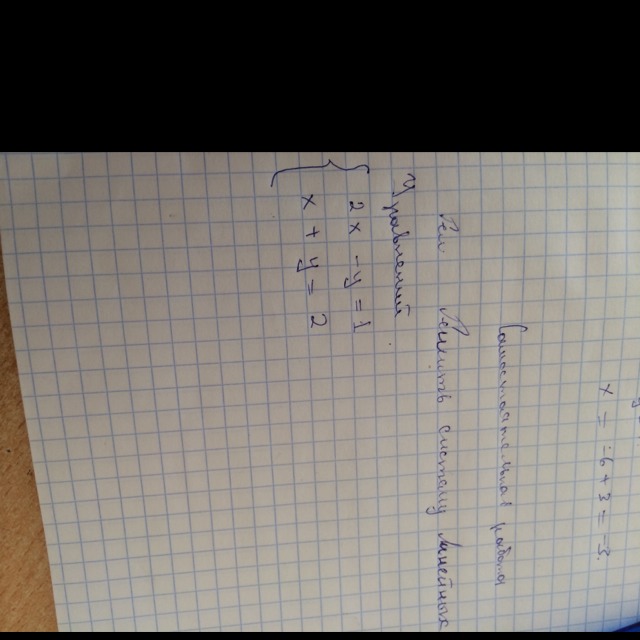 x = -6 + 3 = -3.
Самостоятельная работа
Решить систему линейных
уравнений
2x - y = 1
x + y = 2